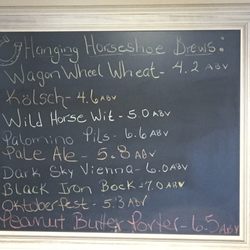 Hanging Horseshoe Brews:
Wagon Wheel Wheat - 4.2 ABV
Kölsch - 4.6 ABV
Wild Horse Wit - 5.0 ABV
Palomino Pils - 6.6 ABV
Pale Ale - 5.8 ABV
Dark Sky Vienna - 6.0 ABV
Black Iron Bock - 7.0 ABV
Oktoberfest - 5.3 ABV
Peanut Butter Porter - 6.5 ABV